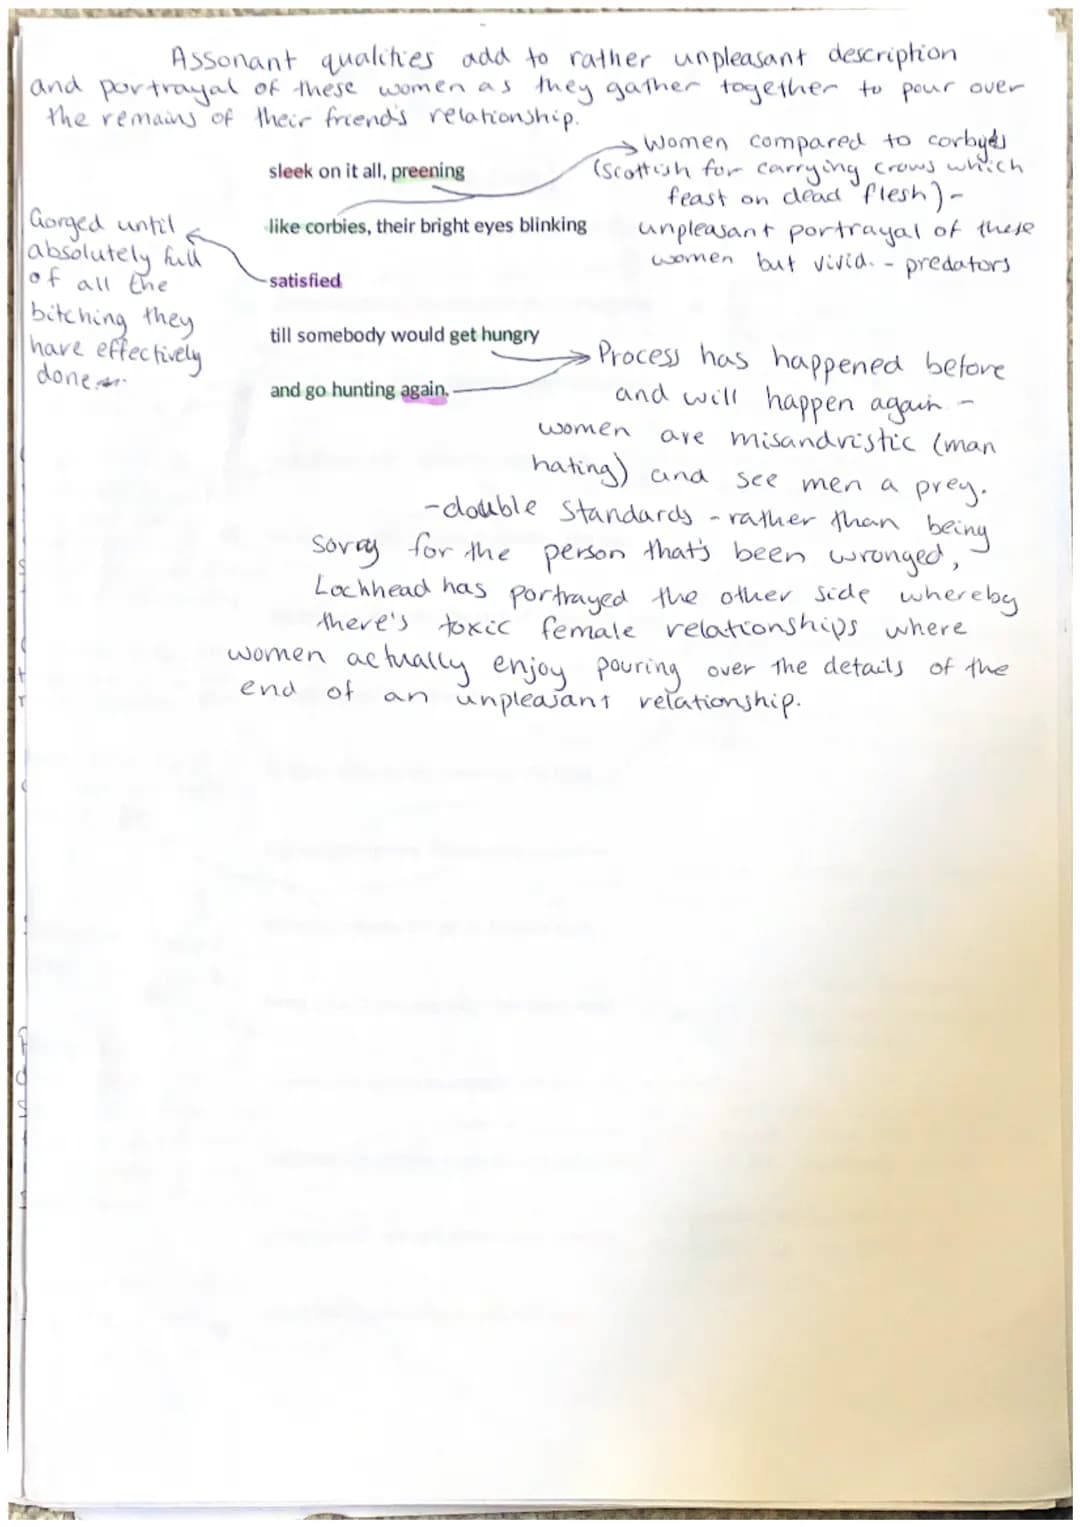 Assonant qualities add to rather unpleasant description
and portrayal of these women as they gather together to pour over
the remains of their friend's relationship.
Women compared to corbyds
sleek on it all, preening
(Scottish for carrying crows which
feast on dead flesh) -
Gorged until
like corbies, their bright eyes blinking
unpleasant portrayal of these
absolutely full
women but vivid. - predators
of all the
satisfied
bitching they
have effectively
till somebody would get hungry
done.
Process has happened before
and go hunting again.
and will happen again -
women are misandristic (man
hating) and see men a prey.
-double standards - rather than being
sorry for the person that's been wronged,
Lochhead has portrayed the other side whereby
there's toxic female relationships where
women actually enjoy pouring over the details of the
end of an unpleasant relationship.